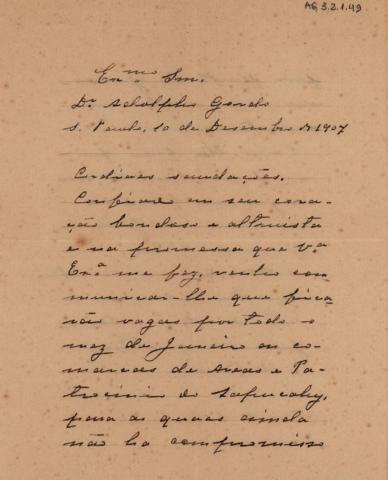 AG 3.2.1.49
Exmo. Snr.
Dr. Adolpho Gordo
S. Paulo, 10 de Dezembro de 1907
Cordiaes saudações.
Confiado em seu cora-
ção bondoso e altruista
e na promessa que V.a
Ex.a me fez, venho com-
municar-lhe que fica-
rão vagas por todo o
mez de Janeiro as co-
marcas de Areas e Pa-
trocinio do Sapucahy,
para as quaes ainda
não ha compromisso